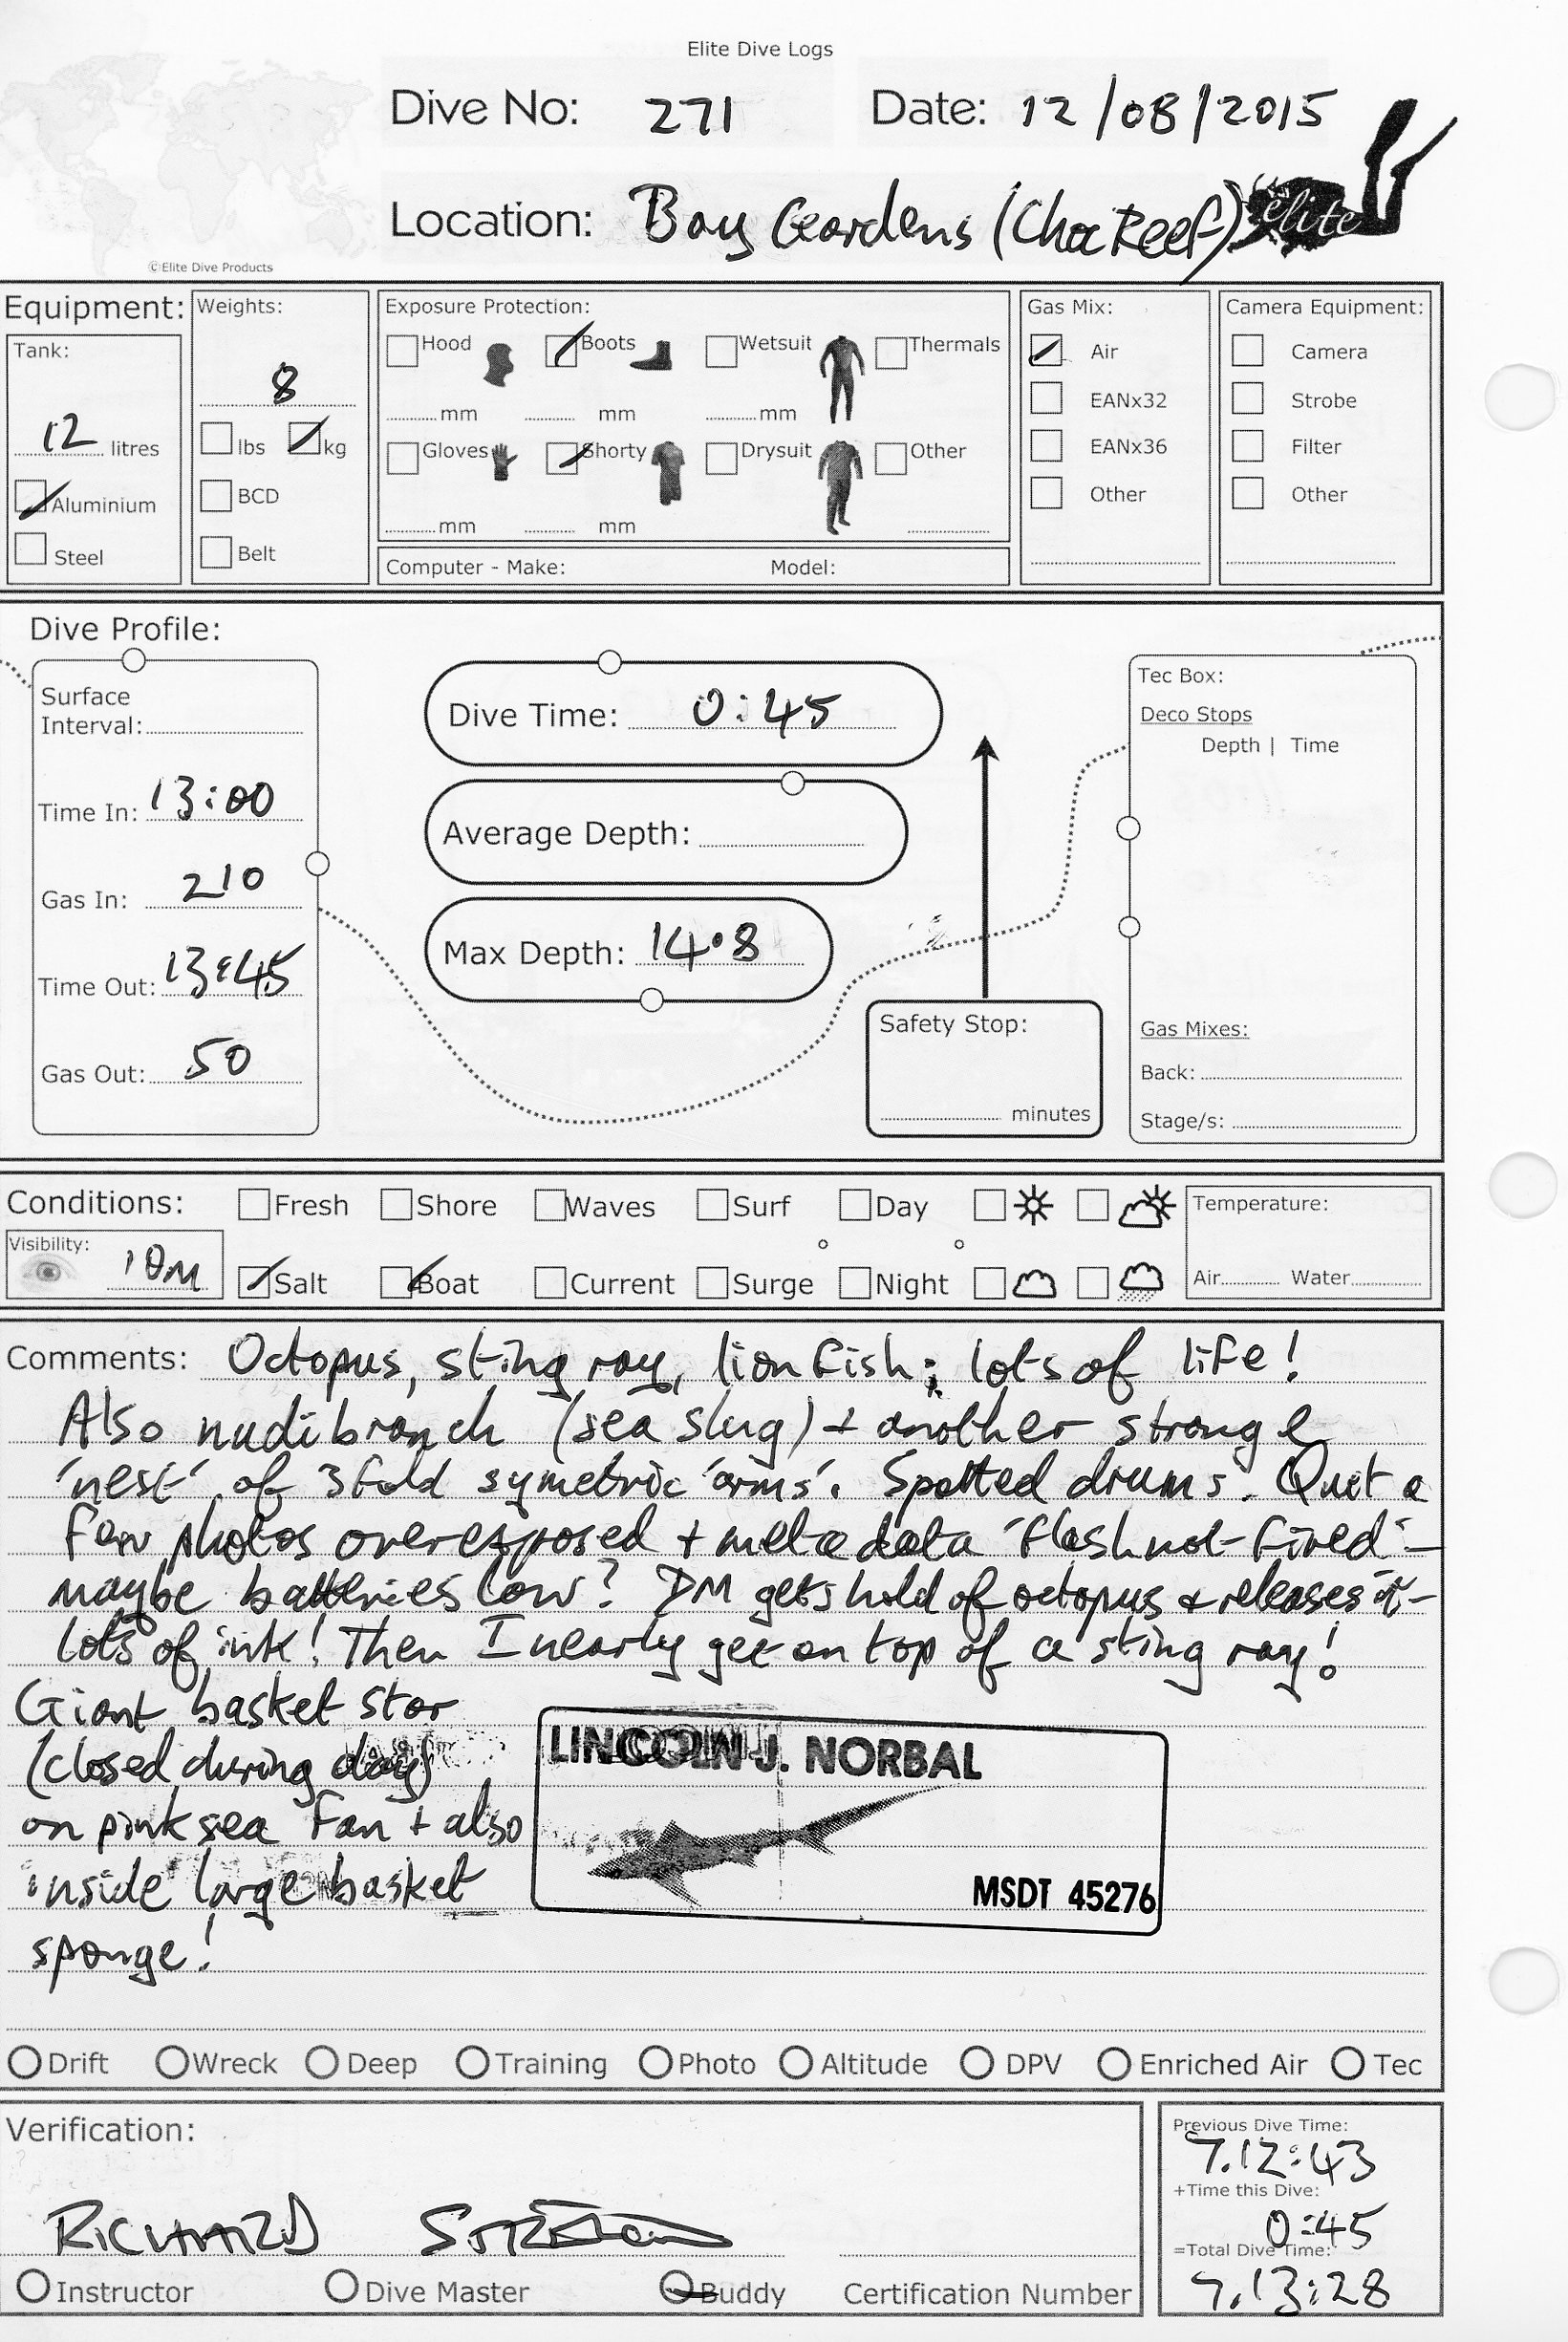 Elite Dive Logs
Dive No: 271 Date: 12/08/2015
Location: Bay Gardens (Choc Reef) elite
©Elite Dive Products
Equipment: Weights: Exposure Protection: Gas Mix: Camera Equipment:
Tank: Hood Boots Wetsuit Thermals Air Camera
8 mm mm mm EANx32 Strobe
12 litres lbs kg Gloves Shorty Drysuit Other EANx36 Filter
Aluminium BCD Other Other
mm mm
Steel Belt Computer - Make: Model:
Dive Profile:
Surface
Interval:
Time In: 13:00
Gas In: 210
Time Out: 13:45
Gas Out: 50
Dive Time: 0:45
Average Depth:
Max Depth: 14.8
Safety Stop:
minutes
Tec Box:
Deco Stops
Depth | Time
Gas Mixes:
Back:
Stage/s:
Conditions: Fresh Shore Waves Surf Day Temperature:
Visibility: 10m Salt Boat Current Surge Night Air Water
Comments: Octopus, sting ray, lion fish; lots of life!
Also nudibranch (sea slug) + another strange
'nest' of 3 fold symetric 'arms'. Spotted drums. Quit a
few photos overexposed + metadata 'flash not fired' -
maybe batteries low? DM gets hold of octopus & releases it -
lots of ink! Then I nearly get on top of a sting ray!
Giant basket star
(closed during day)
on pink sea fan + also
inside large basket
sponge!
LINCOLN J. NORBAL
MSDT 45276
Drift Wreck Deep Training Photo Altitude DPV Enriched Air Tec
Verification:
RICHARD
Instructor Dive Master Buddy Certification Number
Previous Dive Time:
7.12:43
+Time this Dive:
0:45
=Total Dive Time:
7.13:28